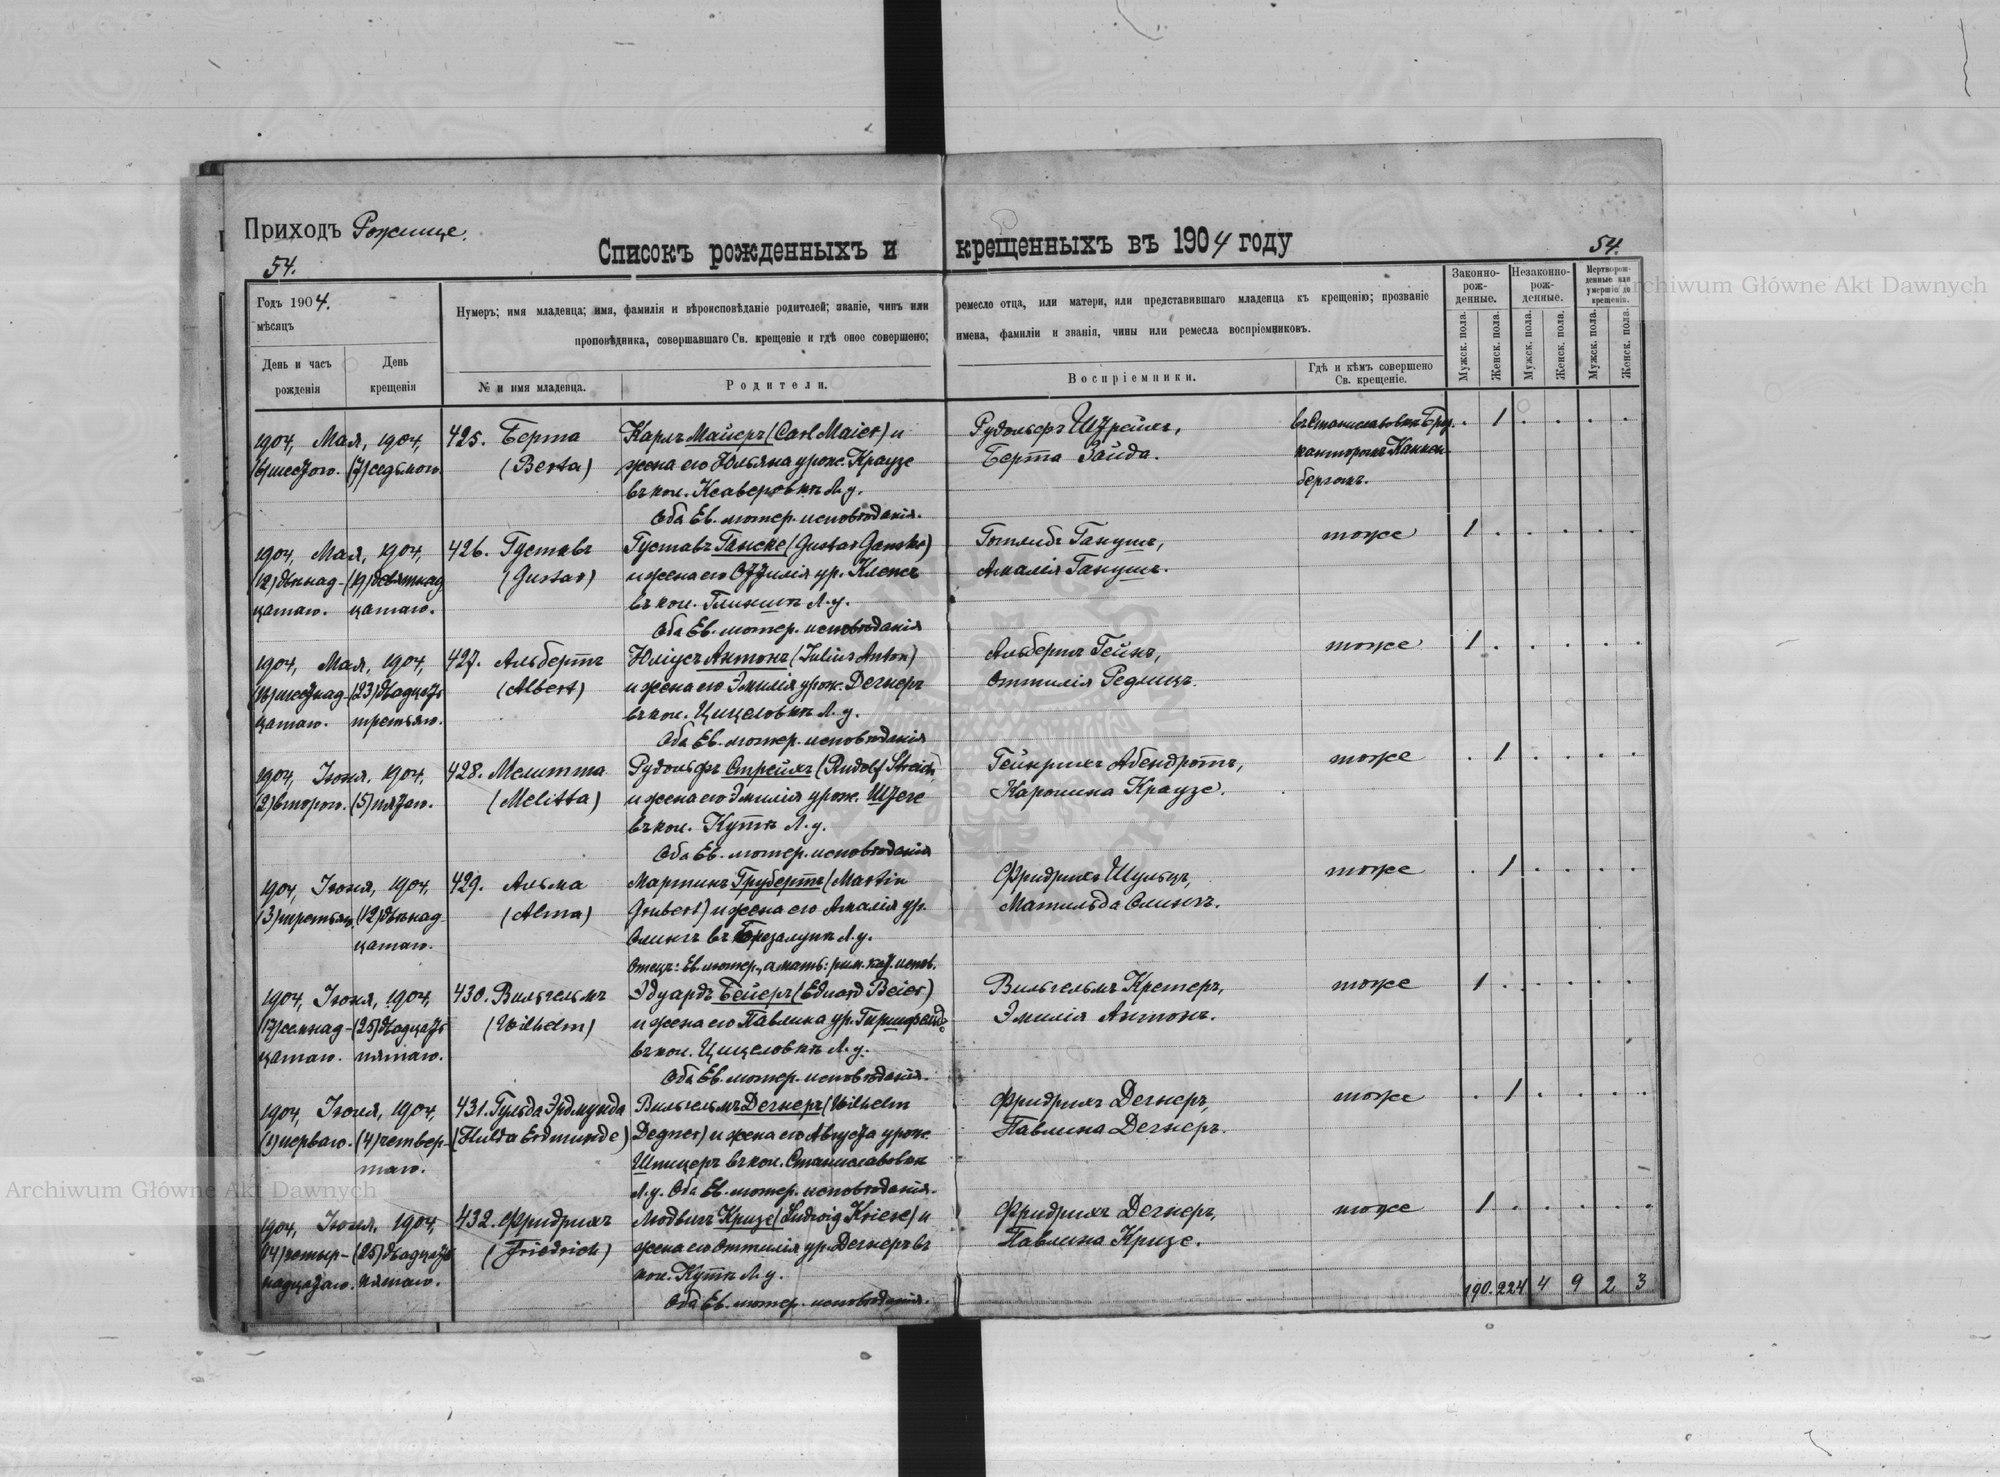 Приходъ Рожище.
Списокъ рожденныхъ и крещенныхъ въ 1904 году
54.
54.
Годъ 1904.
мѣсяцъ
День и часъ рожденія
День крещенія
Нумеръ; имя младенца; имя, фамилія и вѣроисповѣданіе родителей; званіе, чинъ или
ремесло отца, или матери, или представившаго младенца къ крещенію; прозваніе
проповѣдника, совершавшаго Св. крещеніе и гдѣ оное совершено;
имена, фамиліи и званія, чины или ремесла воспріемниковъ.
№ и имя младенца.
Родители.
Воспріемники.
Гдѣ и кѣмъ совершено
Св. крещеніе.
Законно-рож-денные.
Незаконно-рож-денные.
Мертворож-денные или умершіе до крещенія.
Мужск. пола.
Женск. пола.
Мужск. пола.
Женск. пола.
Мужск. пола.
Женск. пола.
1904, Мая, 1904, 425. Берта Карлъ Майеръ (Carl Maier) и Рудольфъ Штрейхъ, въ Станиславовкѣ 1
(6) шестого. (7) седьмого. (Berta) жена его Юльяна урож. Краузе Берта Зайда. канторомъ
въ кол. Ксаверовкѣ Л. у. бергомъ.
Оба Ев. лютер. исповѣданія.
1904, Мая, 1904, 426. Густавъ Густавъ Ганске (Gustav Ganske) Готлибъ Ганушъ, тоже 1
(12) двѣнад- (19) девятнад- (Gustav) и жена его Оттилія ур. Клемъ Амалія Ганушъ.
цатаго. цатаго. въ кол. Л. у.
Оба Ев. лютер. исповѣданія
1904, Мая, 1904, 427. Альбертъ Юліусъ Антонъ (Julius Anton) Альбертъ Гейнъ, тоже 1
(16) шестнад- (23) двадцать (Albert) и жена его Эмилія урож. Дегнеръ Оттилія Редлицъ.
цатаго. третьяго. въ кол. Цицеловкѣ Л. у.
Оба Ев. лютер. исповѣданія
1904, Іюня, 1904, 428. Мелитта Рудольфъ Стрейхъ (Rudolf Streich) Гейнрихъ Абендротъ, тоже 1
(2) второго. (5) пятаго. (Melitta) и жена его Эмилія урож. Штеге Каролина Краузе.
въ кол. Кутъ Л. у.
Оба Ев. лютер. исповѣданія
1904, Іюня, 1904, 429. Альма Мартинъ Грубертъ (Martin Фридрихъ Шульцъ, тоже 1
(3) третьяго (12) двѣнад- (Alma) Grubert) и жена его Амалія ур. Матильда Олингъ.
цатаго. Олингъ въ Л. у.
Отецъ: Ев. лютер., а мать: рим. кат. испов.
1904, Іюня, 1904, 430. Вильгельмъ Эдуардъ Бейеръ (Eduard Beier) Вильгельмъ Кремеръ, тоже 1
(17) семнад- (25) двадцать (Wilhelm) и жена его Павлина ур. Эмилія Антонъ.
цатаго. пятаго. въ кол. Цицеловкѣ Л. у.
Оба Ев. лютер. исповѣданія.
1904, Іюня, 1904, 431. Гульда Эрдмунда Вильгельмъ Дегнеръ (Wilhelm Фридрихъ Дегнеръ, тоже 1
(1) перваго. (4) четвер- (Hulda Erdmunde) Degner) и жена его Августа урож. Павлина Дегнеръ.
таго. Шпицеръ въ кол. Станиславовкѣ
Л. у. Оба Ев. лютер. исповѣданія.
1904, Іюня, 1904, 432. Фридрихъ Людвигъ Кризе (Ludwig Kriese) и Фридрихъ Дегнеръ, тоже 1
(14) четыр- (25) двадцать (Friedrich) жена его Оттилія ур. Дегнеръ въ Павлина Кризе.
надцатаго. пятаго. кол. Кутъ Л. у.
Оба Ев. лютер. исповѣданія.
190. 224 4 9 2 3
Archiwum Główne Akt Dawnych
Archiwum Główne Akt Dawnych